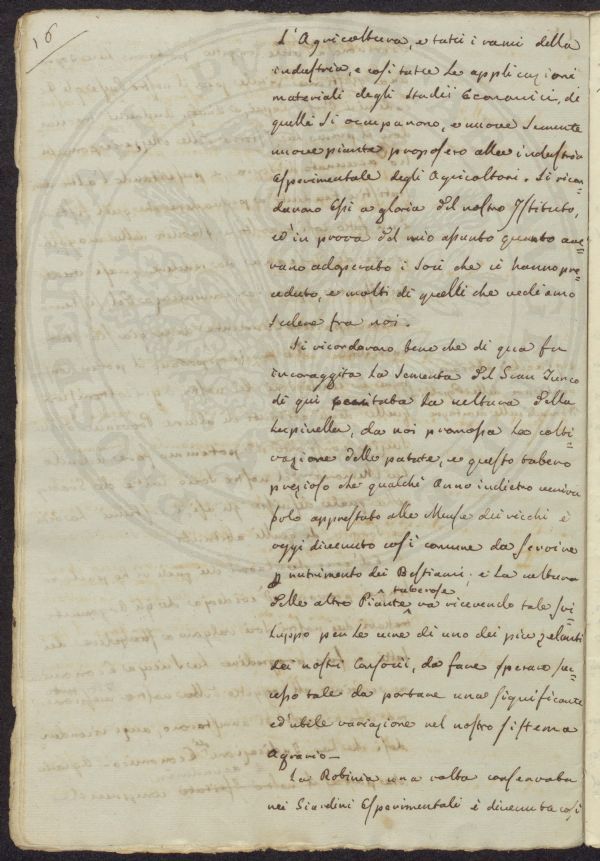 16
L'Agricoltura, e tutti i rami della
industria, e così tutte le applicazioni
materiali degli Studii Economici, di
quelli si occuparono, e nuove Semente
nuove piante proposero alle industria
Esperimentale degli Agricoltori. Si ricor=
davano Essi a gloria del nostro Istituto,
ed in prova del mio assunto quanto ave=
vano adoperato i Soci che ci hanno pre=
ceduto, e molti di quelli che vediamo
sedere fra noi.
Si ricordavano bene che di qua fu
incoraggita la Sementa del Gran Turco
di qui la cultura della
Lupinella, da noi promossa la colti=
vazione delle patate, e questo tubero
prezioso che qualche Anno indietro veniva
solo apprestato alle Mense dei ricchi è
oggi divenuto così comune da servire
p nutrimento dei Bestiami; e la cultura
tuberose
delle altre Piante va ricevendo tale svi=
luppo per le cure di uno dei più zelanti
dei nostri Consocii, da fare sperare suc=
cesso tale da portare una significante
ed utile variazione nel nostro sistema
Agrario_
La Robinia una volta conservata
nei Giardini Esperimentali è divenuta così